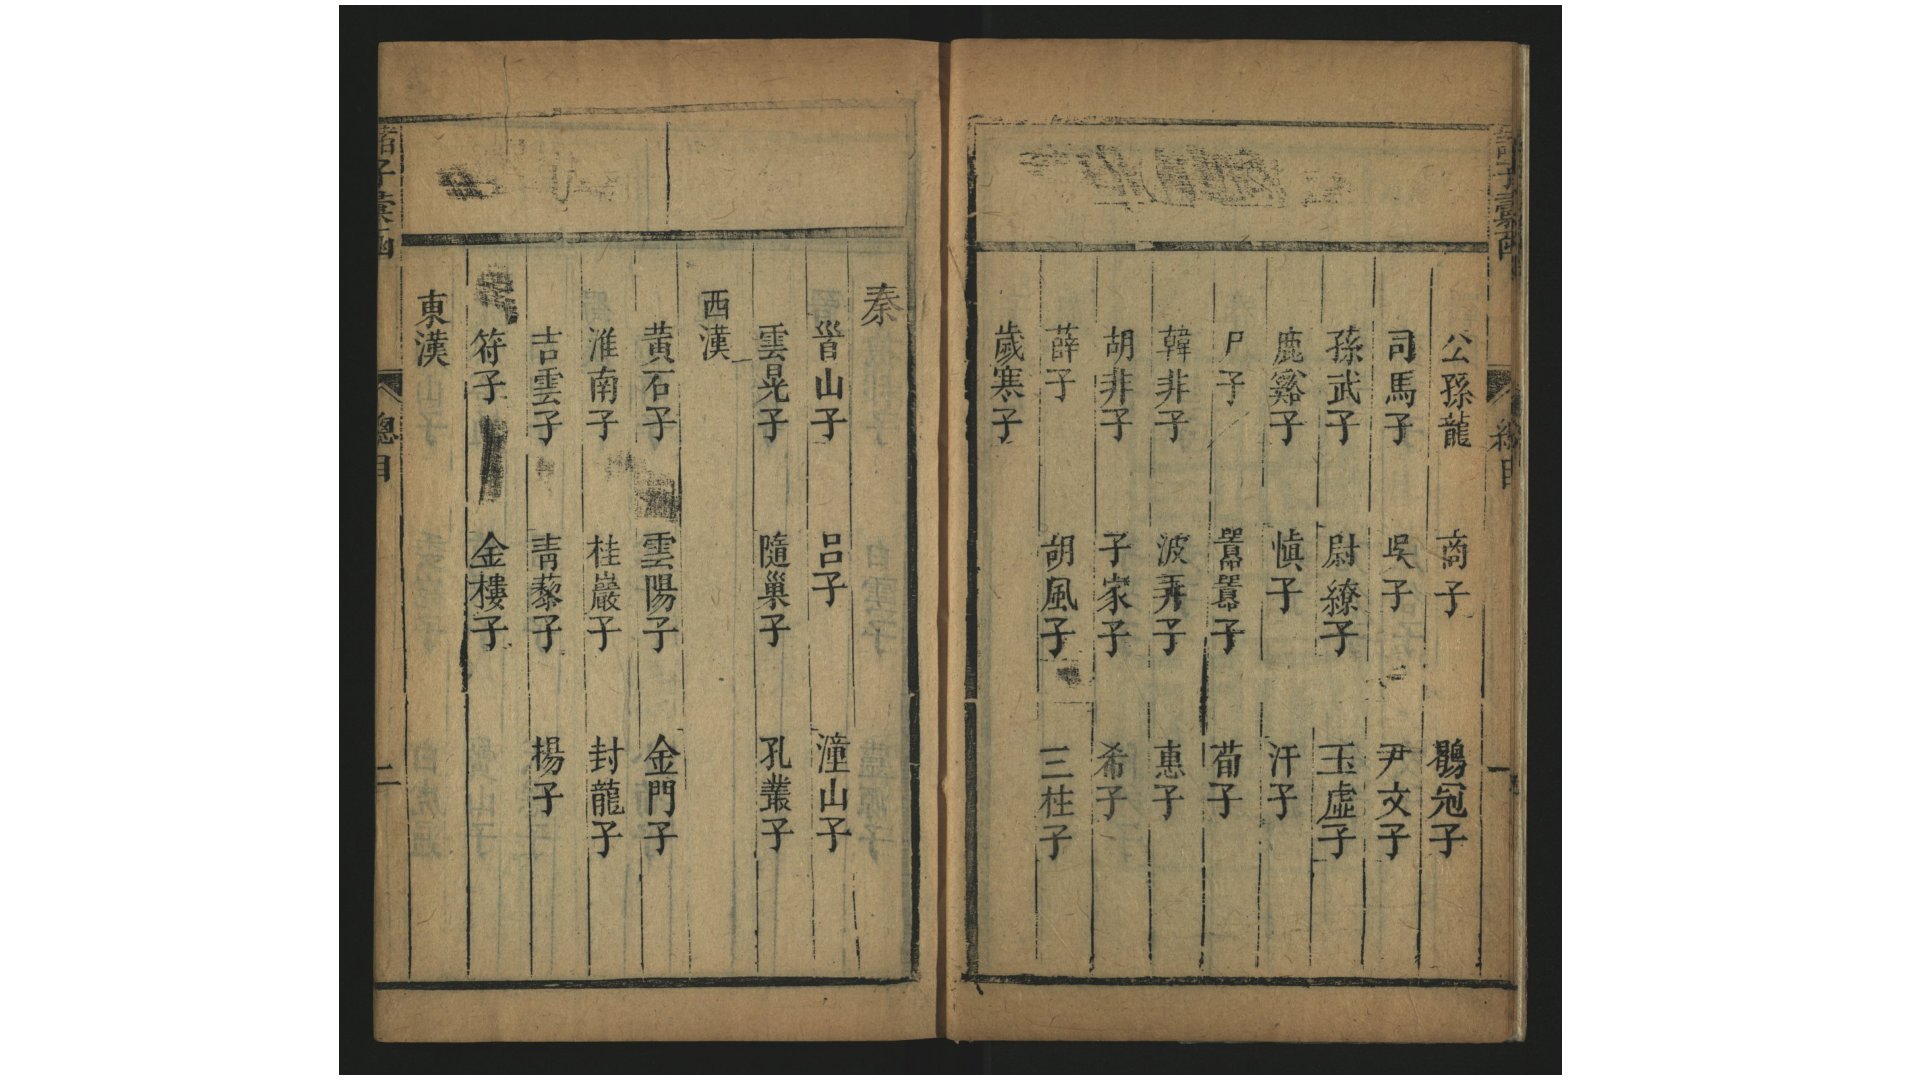 諸子彙函
總目
一
公孫龍 商子 鶡冠子
司馬子 吳子 尹文子
孫武子 尉繚子 玉虛子
鹿谿子 愼子 汗子
尸子 嚣嚣子 荀子
韓非子 波弄子 惠子
胡非子 子家子 希子
薛子 胡風子 三柱子
歲寒子
秦
晉山子 呂子 潼山子
雲晃子 隨巢子 孔叢子
西漢
黄石子 雲陽子 金門子
淮南子 桂巖子 封龍子
吉雲子 靑藜子 揚子
符子 金樓子
東漢
諸子彙函
總目
二